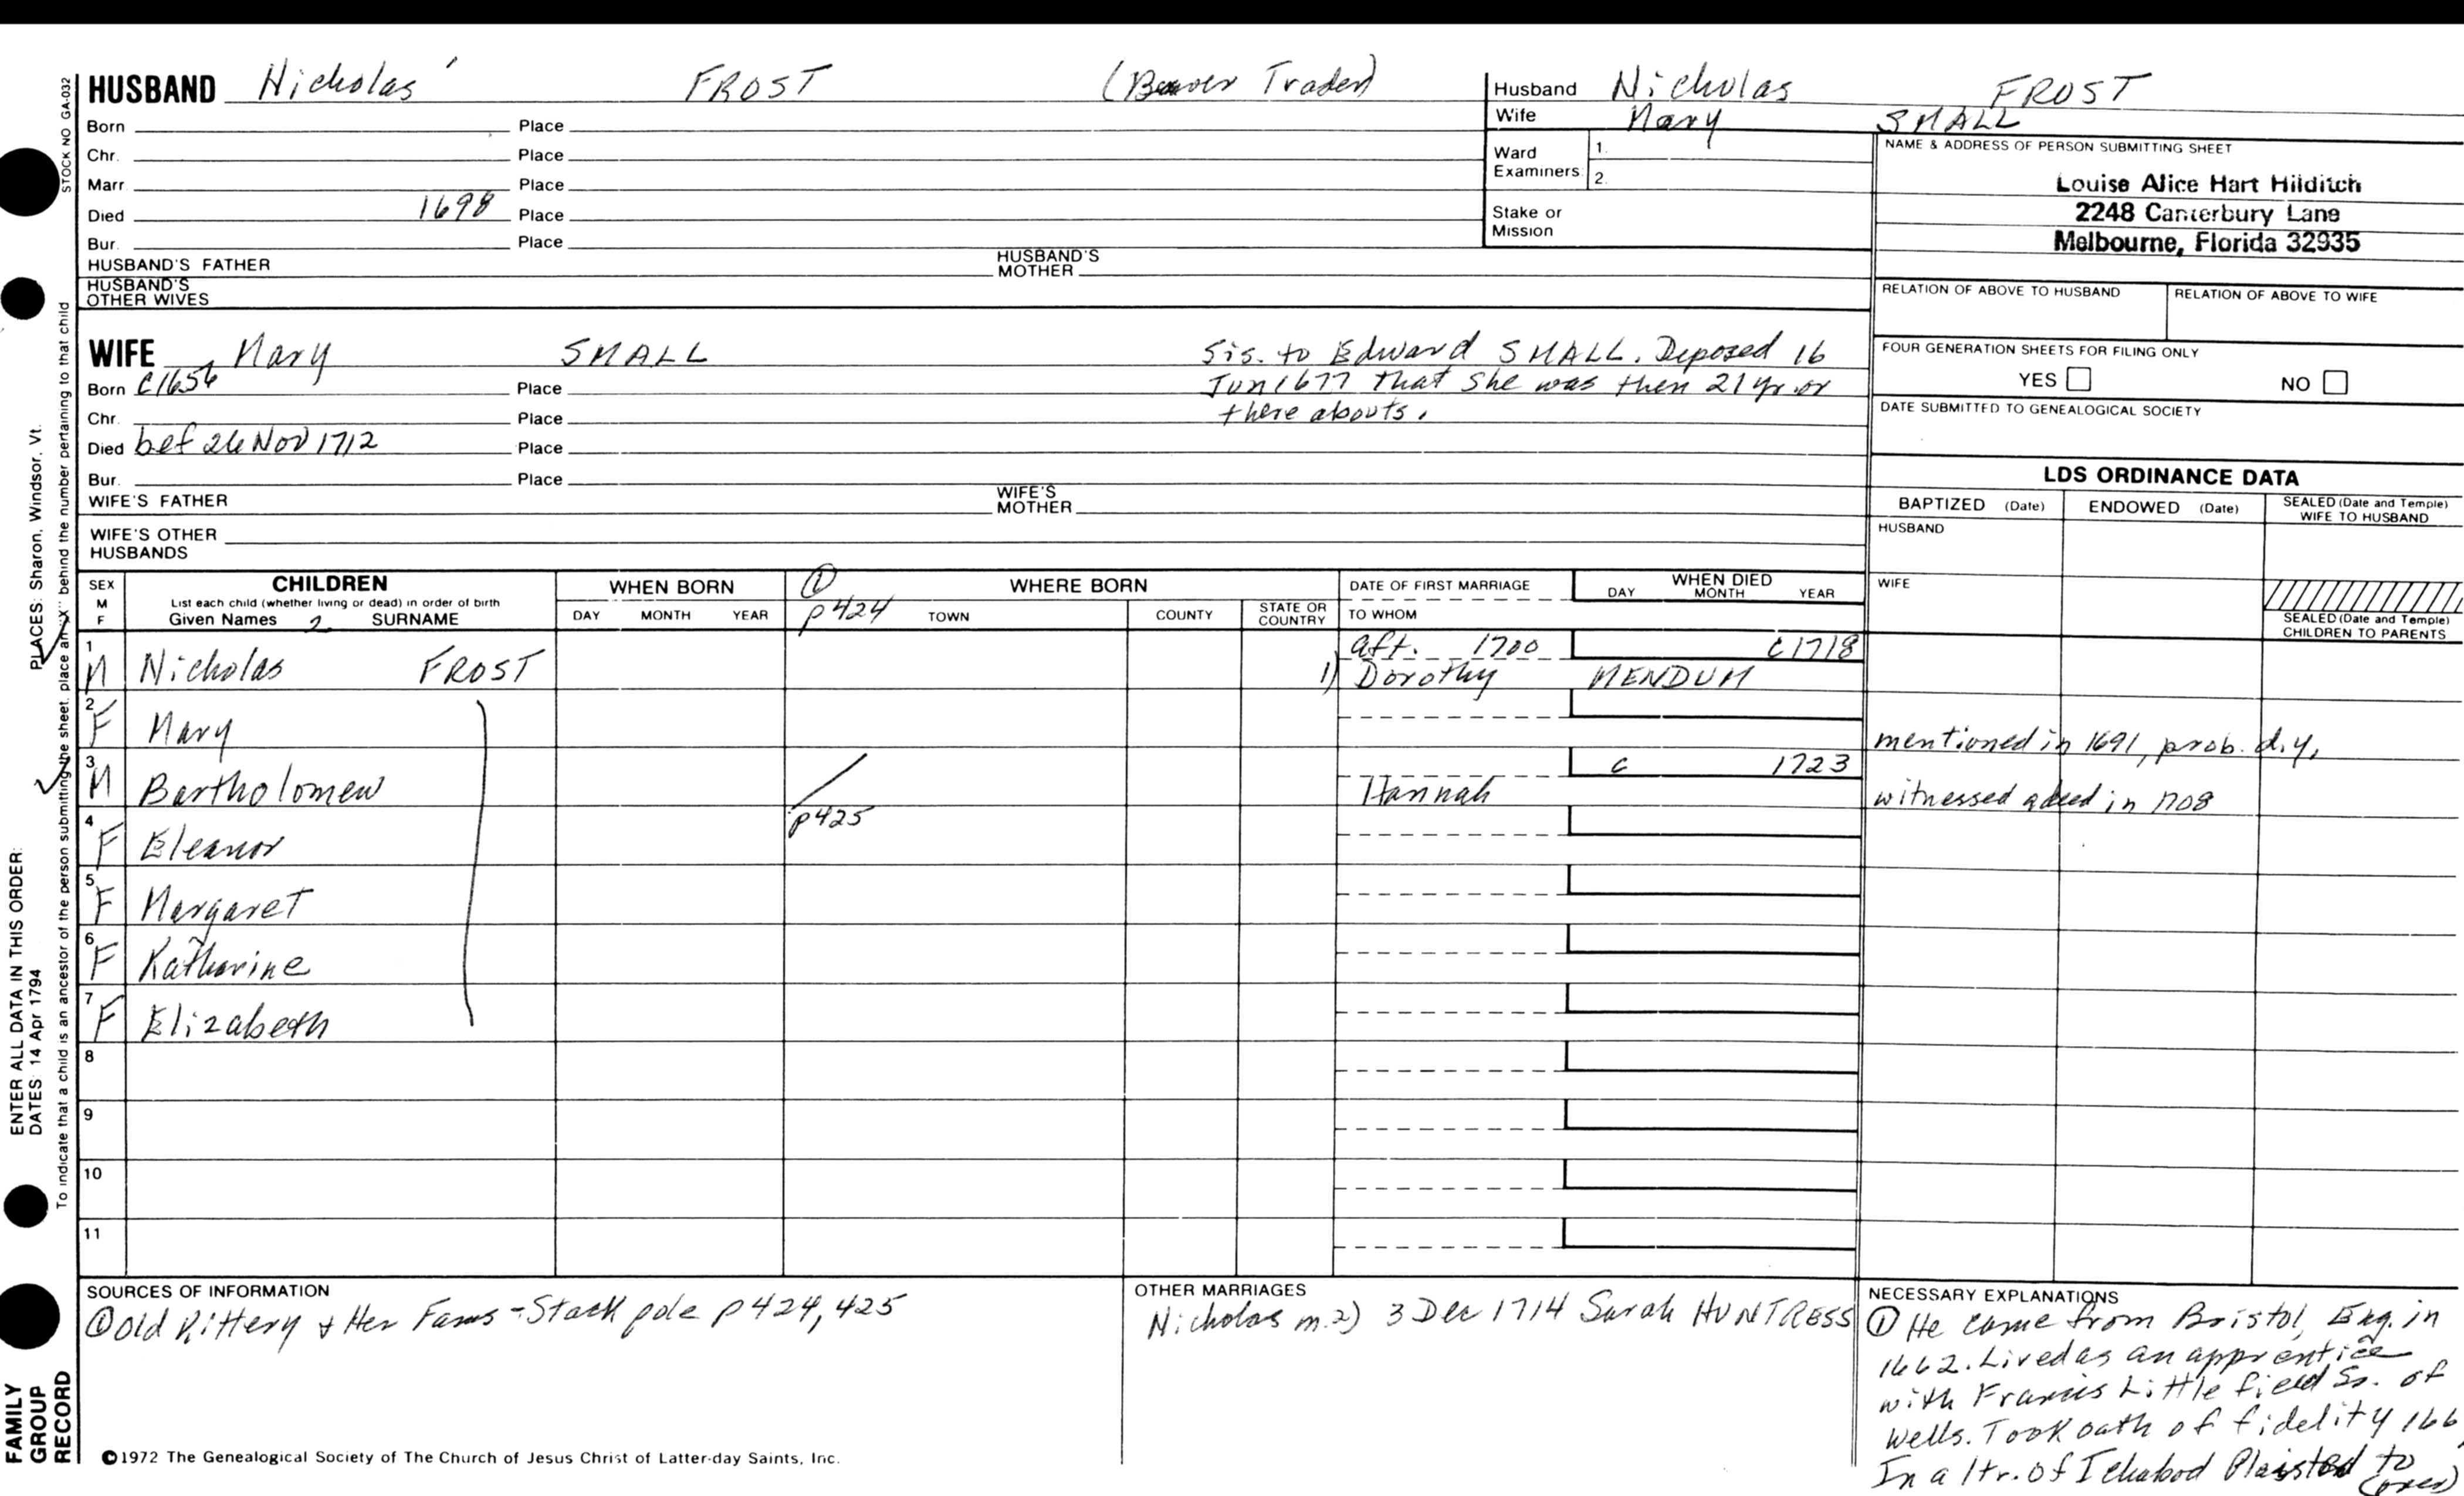 HUSBAND Nicholas FROST (Beaver Trader)
Born Place
Chr. Place
Marr. Place
Died 1698 Place
Bur. Place
HUSBAND'S FATHER HUSBAND'S MOTHER
HUSBAND'S OTHER WIVES
Husband Nicholas FROST
Wife Mary SMALL
Ward Examiners 1.
2.
Stake or Mission
NAME & ADDRESS OF PERSON SUBMITTING SHEET
Louise Alice Hart Hilditch
2248 Canterbury Lane
Melbourne, Florida 32935
RELATION OF ABOVE TO HUSBAND RELATION OF ABOVE TO WIFE
FOUR GENERATION SHEETS FOR FILING ONLY
YES NO
DATE SUBMITTED TO GENEALOGICAL SOCIETY
WIFE Mary SMALL Sis. to Edward SMALL. Deposed 16
Born C1656 Place Jun 1677 that she was then 21 yr or
Chr. Place there abouts.
Died bef 26 Nov 1712 Place
Bur. Place
WIFE'S FATHER WIFE'S MOTHER
WIFE'S OTHER HUSBANDS
LDS ORDINANCE DATA
BAPTIZED (Date) ENDOWED (Date) SEALED (Date and Temple) WIFE TO HUSBAND
HUSBAND
WIFE
SEALED (Date and Temple) CHILDREN TO PARENTS
SEX M F
CHILDREN
List each child (whether living or dead) in order of birth
Given Names SURNAME
WHEN BORN
DAY MONTH YEAR
① p424
WHERE BORN
TOWN COUNTY STATE OR COUNTRY
DATE OF FIRST MARRIAGE
TO WHOM
WHEN DIED
DAY MONTH YEAR
1 aft. 1700 C1718
M Nicholas FROST 1) Dorothy MENDUM
2
F Mary mentioned in 1691, prob. d.y.
3 c 1723
M Bartholomew Hannah witnessed a deed in 1708
4 p425
F Eleanor
5
F Margaret
6
F Katherine
7
F Elizabeth
8
9
10
11
SOURCES OF INFORMATION
① Old Kittery & Her Fams - Stackpole p424, 425
OTHER MARRIAGES
Nicholas m. 2) 3 Dec 1714 Sarah HUNTRESS
NECESSARY EXPLANATIONS
① He came from Bristol, Eng. in
1662. Lived as an apprentice
with Francis Littlefield Sr. of
Wells. Took oath of fidelity 166
In a ltr. of Ichabod Plaisted to
(over)
©1972 The Genealogical Society of The Church of Jesus Christ of Latter-day Saints, Inc.
STOCK NO GA-032
To indicate that a child is an ancestor of the person submitting the sheet, place an "X" behind the number pertaining to that child
PLACES: Sharon, Windsor, Vt.
ENTER ALL DATA IN THIS ORDER:
DATES: 14 Apr 1794
FAMILY
GROUP
RECORD